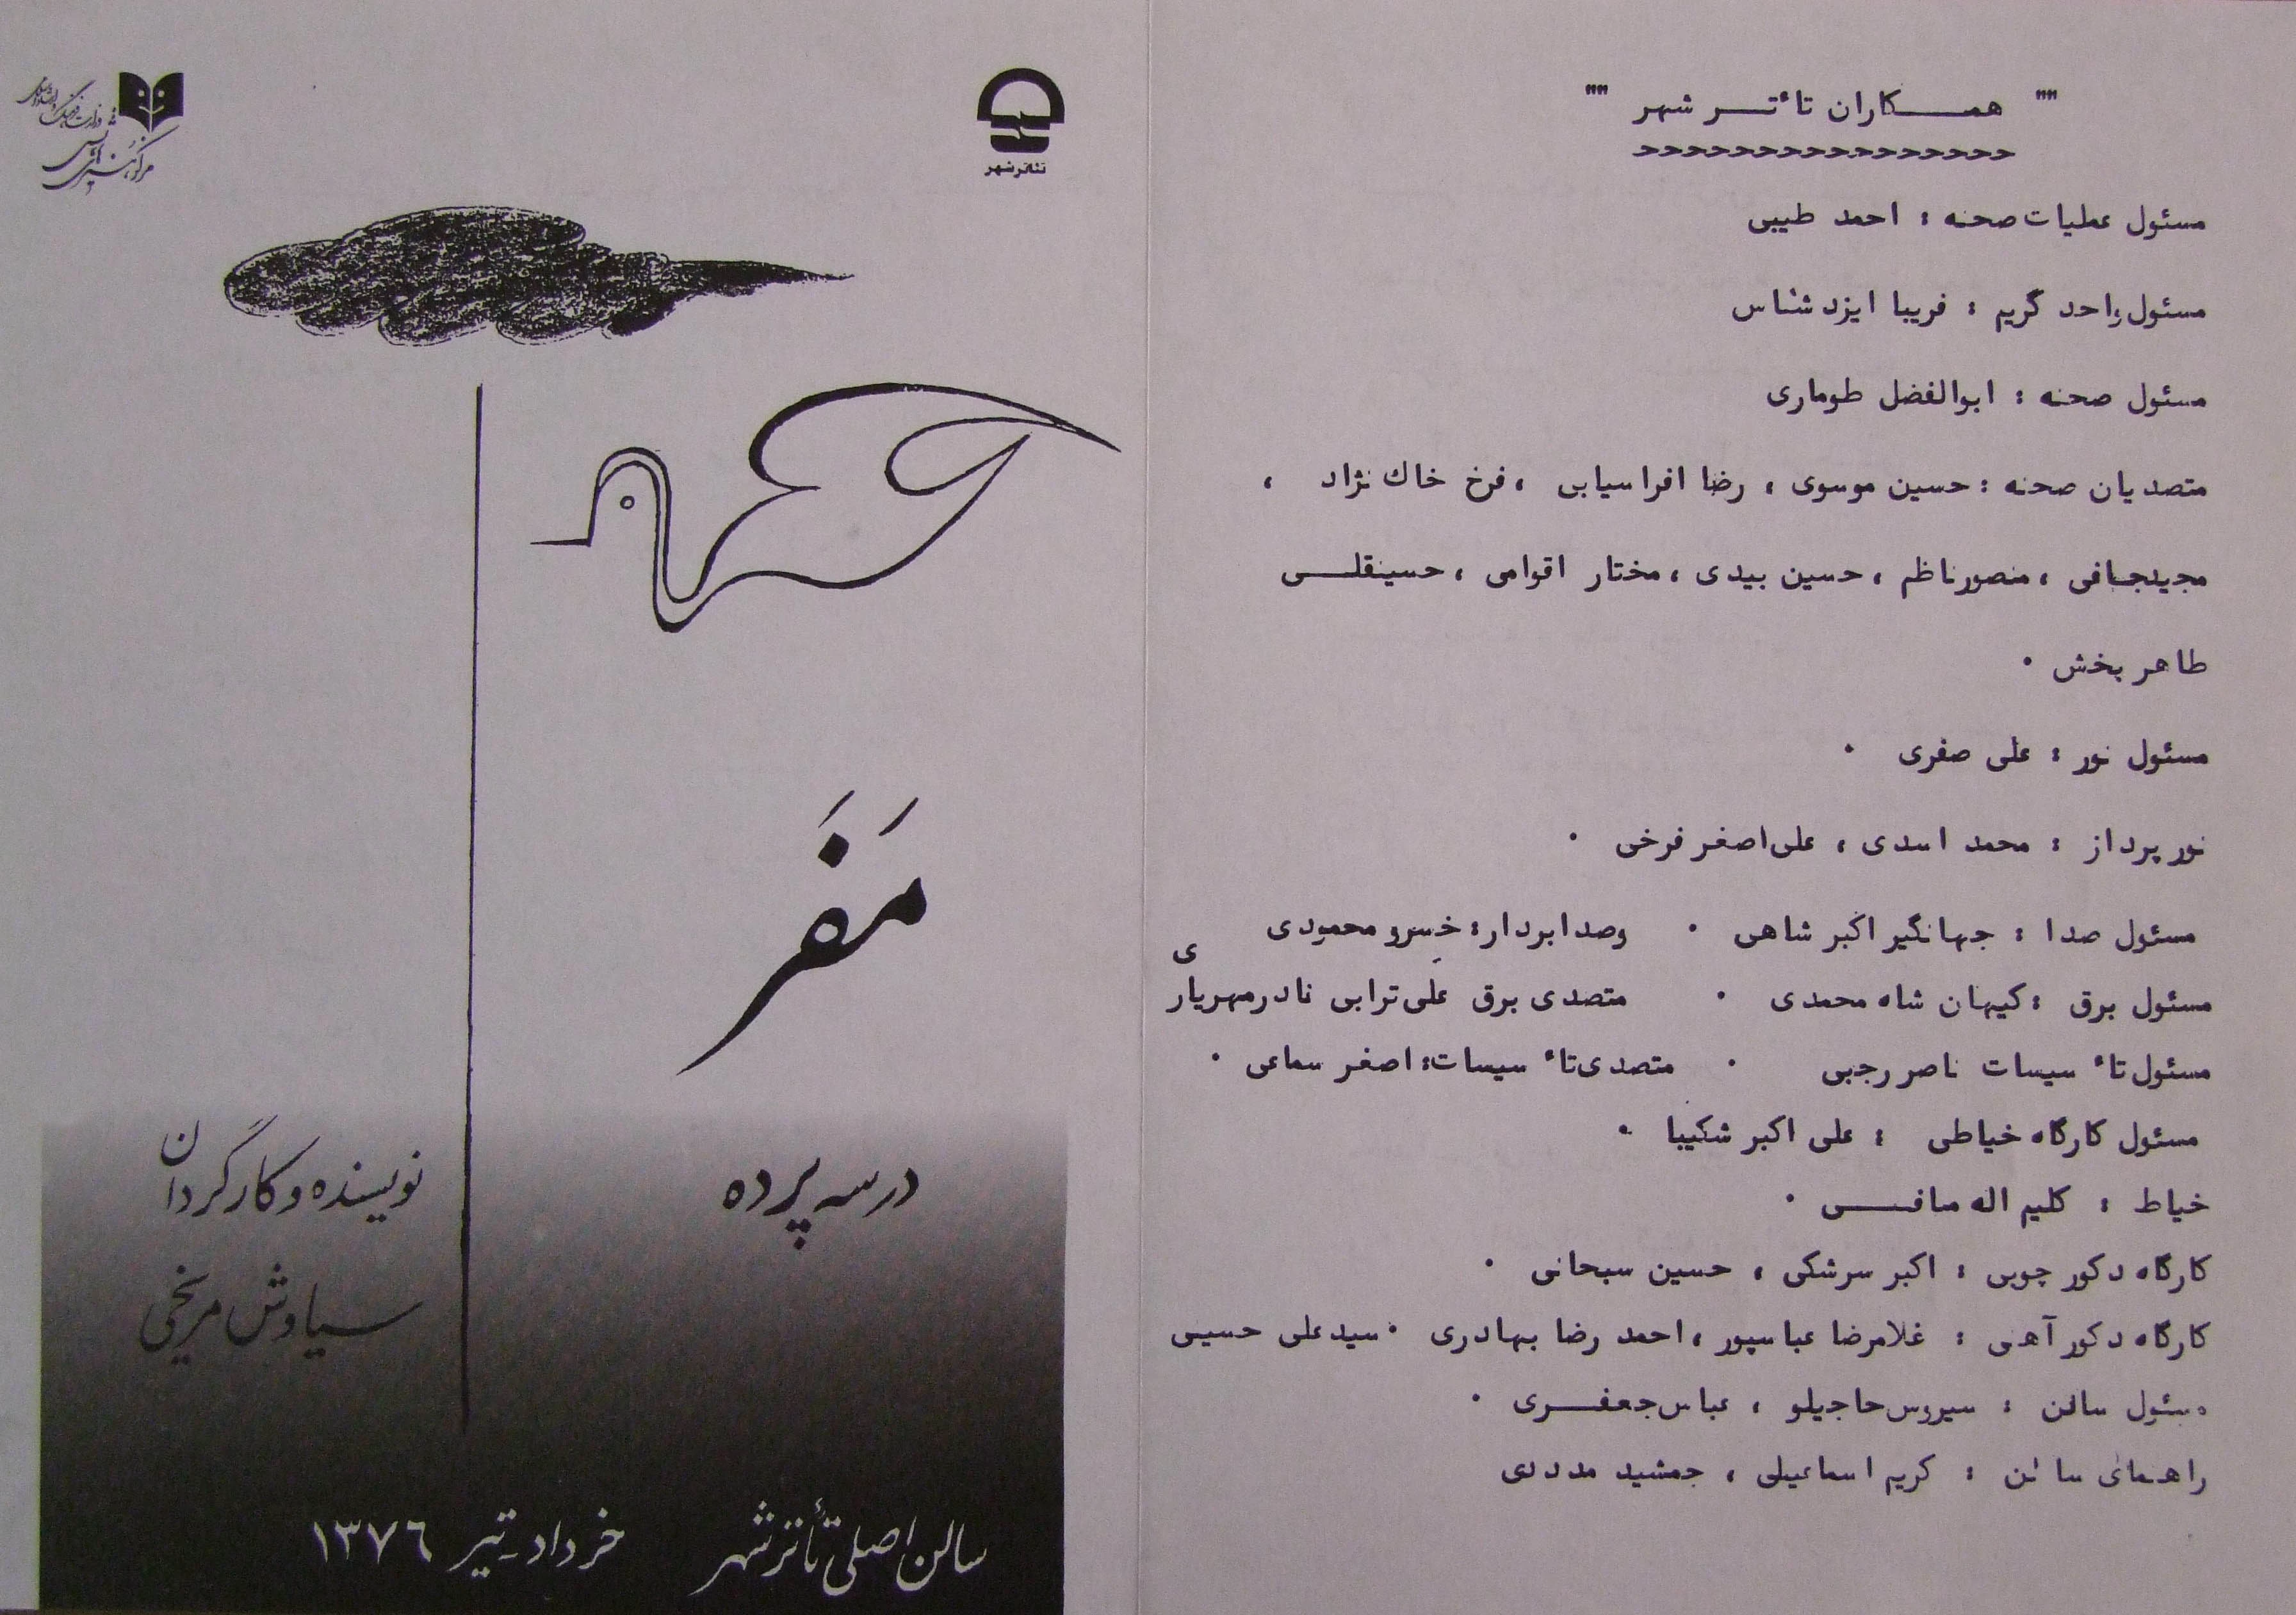 "" همـــکاران تاٴتـــر شهر ""
مسئول عملیات صحنه : احمد طیبی
مسئول واحد گریم : فریبا ایزد شناس
مسئول صحنه : ابوالفضل طوماری
متصدیان صحنه : حسین موسوی ، رضا افراسیابی ، فرخ خاك نژاد ،
مجیدجافی ، منصورناظم ، حسین بیدی ، مختار اقوامی ، حسینقلــی
طاهر بخش .
مسئول نور : علی صفری .
نور پرداز : محمد اسدی ، علی‌اصغر فرخی .
مسئول صدا : جهانگیر اکبر شاهی . وصدابردار : خسرو محمودی
مسئول برق : کیهان شاه محمدی . متصدی برق علی ترابی نادر مهریاری
مسئول تاٴ سیسات ناصر رجبی . متصدی تاٴ سیسات : اصغر سماعی .
مسئول کارگاه خیاطی : علی اکبر شکیبا .
خیاط : کلیم اله صافــی .
کارگاه دکور چوبی : اکبر سرشکی ، حسین سبحانی .
کارگاه دکور آهنی : غلامرضا عباسپور ، احمد رضا بهادری . سید علی حسینی
مسئول سالن : سیروس حاجیلو ، عباس جعفــری .
راهنمای سالن : کریم اسماعیلی ، جمشید مددی
تئاتر شهر
مرکز هنرهای نمایشی
مَفَر
در سه پرده
نویسنده و کارگردان
سیاوش مریخی
سالن اصلی تأتر شهر خرداد - تیر ۱۳۷۶